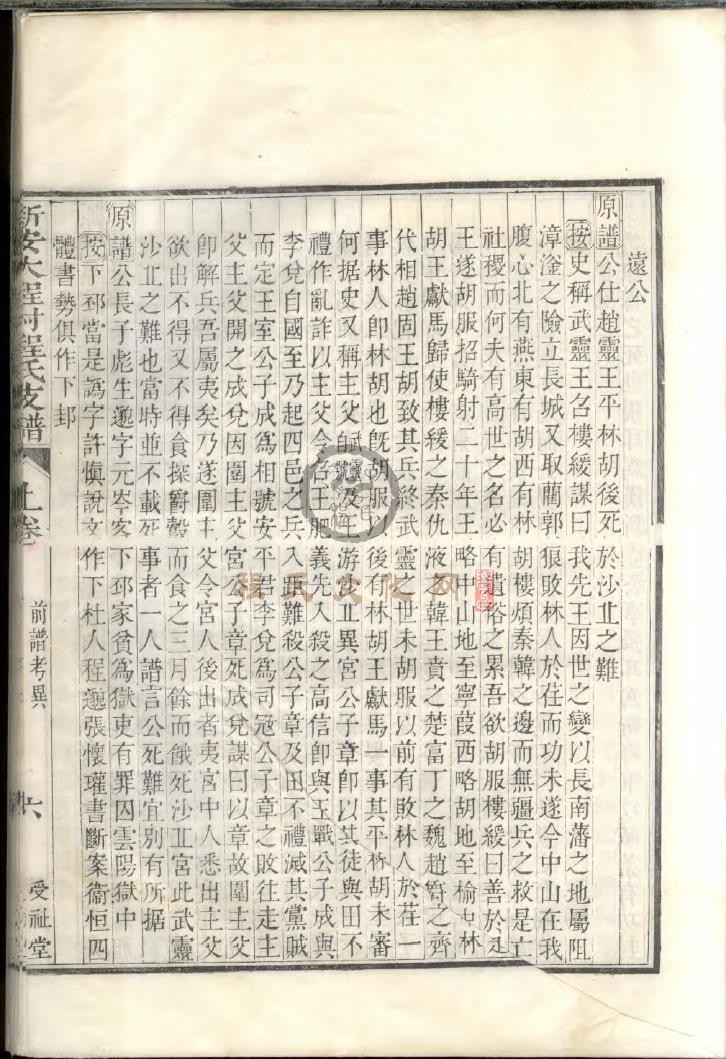 遠公
原譜公仕趙靈王平林胡後死於沙丘之難
按史稱武靈王召樓緩謀曰我先王因世之變以長南藩之地屬阻
漳滏之險立長城又取藺郭狼敗林人於荏而功未遂今中山在我
腹心北有燕東有胡西有林胡樓煩秦韓之邊而無疆兵之救是亡
社稷而何夫有高世之名必有遺俗之累吾欲胡服樓緩曰善於是
王遂胡服招騎射二十年王略中山地至寧葭西略胡地至榆中林
胡王獻馬歸使樓緩之秦仇液之韓王賁之楚富丁之魏趙爵之齊
代相趙固王胡致其兵終武靈之世未胡服以前有敗林人於荏一
事林人即林胡也旣胡服以後有林胡王獻馬一事其平林胡未審
何据史又稱主父武靈自號及王游沙丘異宮公子章卽以其徒與田不
禮作亂詐以主父令召王肥義先入殺之高信卽與王戰公子成與
李兌自國至乃起四邑之兵入距難殺公子章及田不禮滅其黨賊
而定王室公子成爲相號安平君李兌爲司寇公子章之敗往走主
父主父開之成兌因圍主父宮公子章死成兌謀曰以章故圍主父
卽解兵吾屬夷矣乃遂圍主父令宮人後出者夷宮中人悉出主父
欲出不得又不得食探爵鷇而食之三月餘而餓死沙丘宮此武靈
沙丘之難也當時並不載死事者一人譜言公死難宜別有所据
原譜公長子彪生邈字元岑客下邳家貧爲獄吏有罪囚雲陽獄中
按下邳當是譌字許愼說文作下杜人程邈張懷瓘書斷案衞恒四
體書勢俱作下邽
新安大程村程氏支譜
上卷
前譜考異
六
受祉堂
程氏文化网